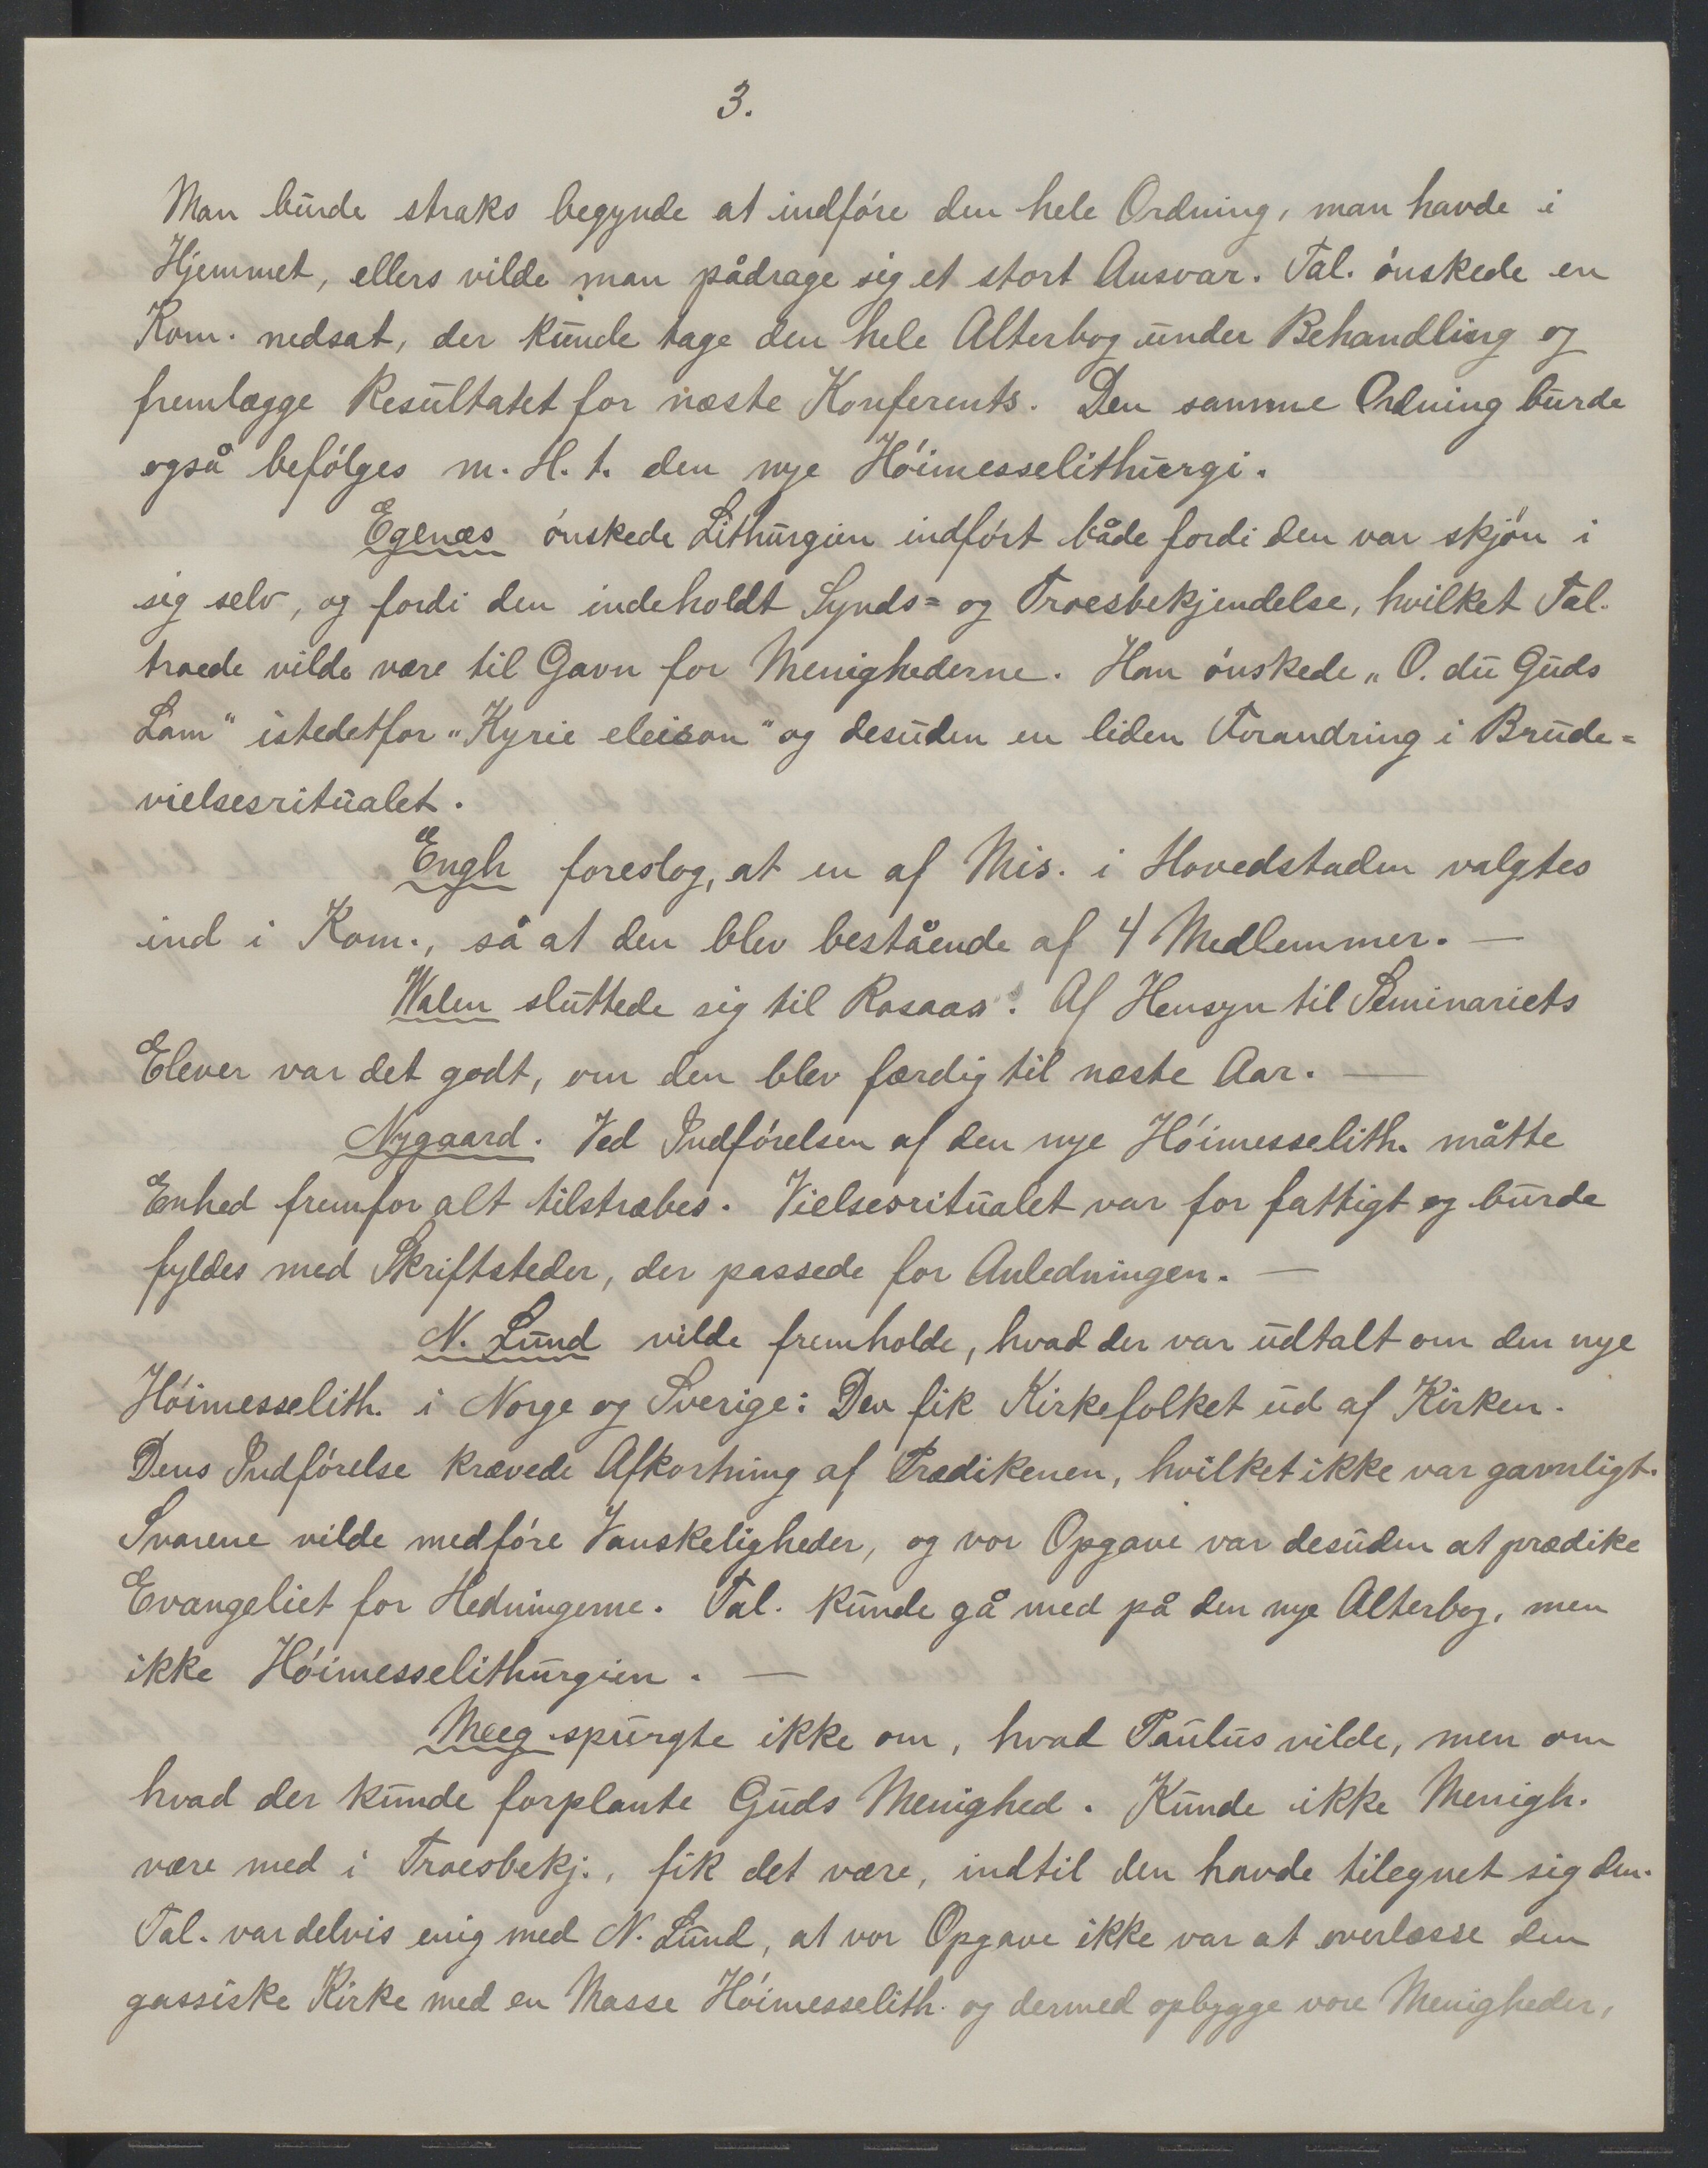 3.
Man burde straks begynde at indføre den hele Ordning, man havde i
Hjemmet, ellers vilde man pådrage sig et stort Ansvar. Tal. ønskede en
Kom. nedsat, der kunde tage den hele Alterbog under Behandling og
fremlægge Resultatet for næste Konferents. Den samme Ordning burde
også befølges m. H. t. den nye Høimesselithurgi.
Egenæs ønskede Lithurgien indført både fordi den var skjøn i
sig selv, og fordi den indeholdt Synds= og Troesbekjendelse, hvilket Tal.
troede vilde være til Gavn for Menighederne. Han ønskede „O. du Guds
Lam" istedetfor „Kyrie eleison" og desuden en liden Forandring i Brude=
vielsesritualet.
Engh foreslog, at en af Mis. i Hovedstaden valgtes
ind i Kom., så at den blev bestående af 4 Medlemmer. —
Walen sluttede sig til Rosaas. Af Hensyn til Seminariets
Elever var det godt, om den blev færdig til næste Aar. —
Nygaard. Ved Indførelsen af den nye Høimesselith. måtte
Enhed fremfor alt tilstræbes. Vielsesritualet var for fattigt og burde
fyldes med Skriftsteder, der passede for Anledningen. —
N. Lund vilde fremholde, hvad der var udtalt om den nye
Høimesselith. i Norge og Sverige: Den fik Kirkefolket ud af Kirken.
Dens Indførelse krævede Afkortning af Prædikenen, hvilket ikke var gavnligt.
Svarene vilde medføre Vanskeligheder, og vor Opgave var desuden at prædike
Evangeliet for Hedningerne. Tal. kunde gå med på den nye Alterbog, men
ikke Høimesselithurgien. —
Meeg spurgte ikke om, hvad Paulus vilde, men om
hvad der kunde forplante Guds Menighed. Kunde ikke Menigh.
være med i Troesbekj., fik det være, indtil den havde tilegnet sig den.
Tal. var delvis enig med N. Lund, at vor Opgave ikke var at overlæsse den
gassiske Kirke med en Masse Høimesselith. og dermed opbygge vore Menigheder,